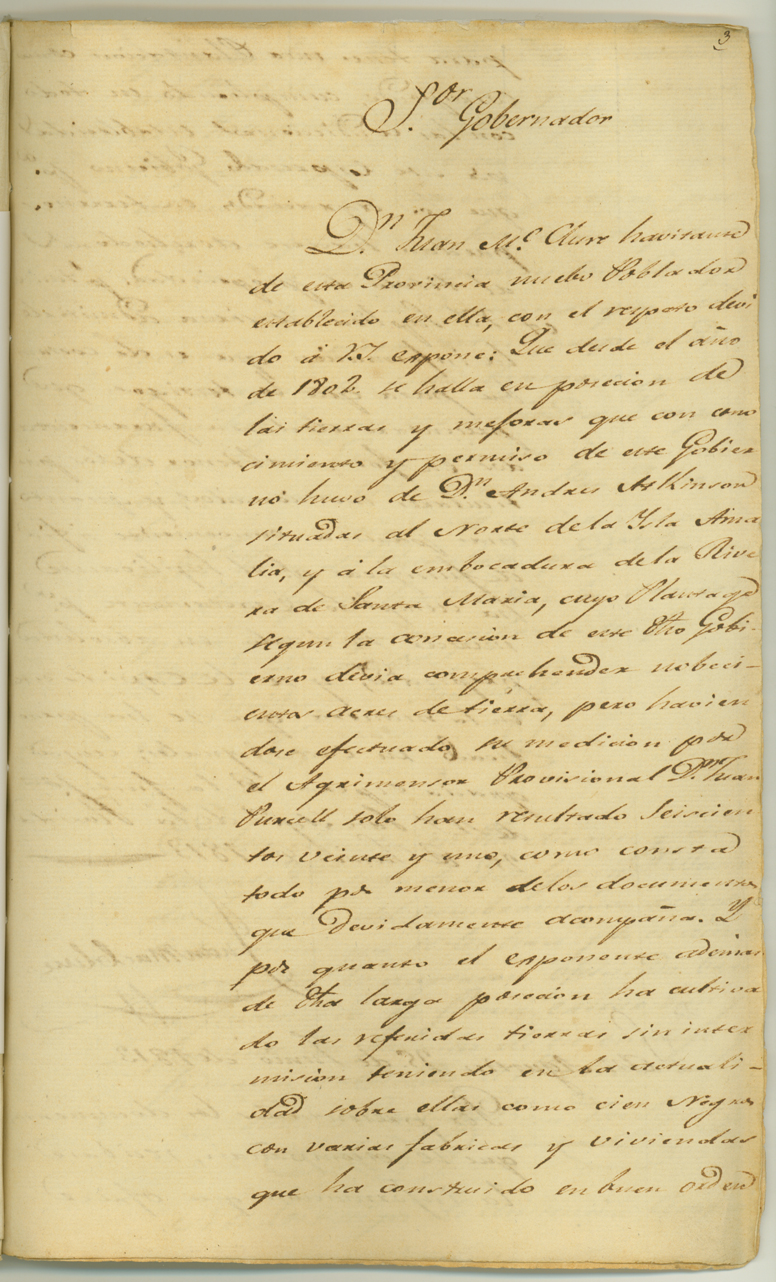 3
S.or Gobernador
D.n Juan M.c Clure havitante
de esta Provincia nuebo Poblador
establecido en ella, con el respeto devi
do á V.S. expone: Que desde el año
de 1802 se halla en posecion de
las tierras y mejoras que con cono
cimiento y permiso de este Gobier
no huvo de D.n Andres Atkinson
situadas al Norte de la Ysla Ama
lia, y á la embocadura de la Rive
ra de Santa Maria, cuyo Plantage
segun la concesion de este dho Gobi-
erno devia comprehender nobeci-
entos acres de tierra, pero havien
dose efectuado su medicion por
el Agrimensor Provisional D.n Juan
Purcell solo han resultado Seiscien
tos veinte y uno, como consta
todo por menor de los documentos
que devidamente acompaña. Y
por quanto el exponente ademas
de dha larga posecion ha cultiva
do las referidas tierras sin inter
mision teniendo en la actuali-
dad sobre ellas como cien Negros
con varias fabricas y viviendas
que ha construido en buen orden